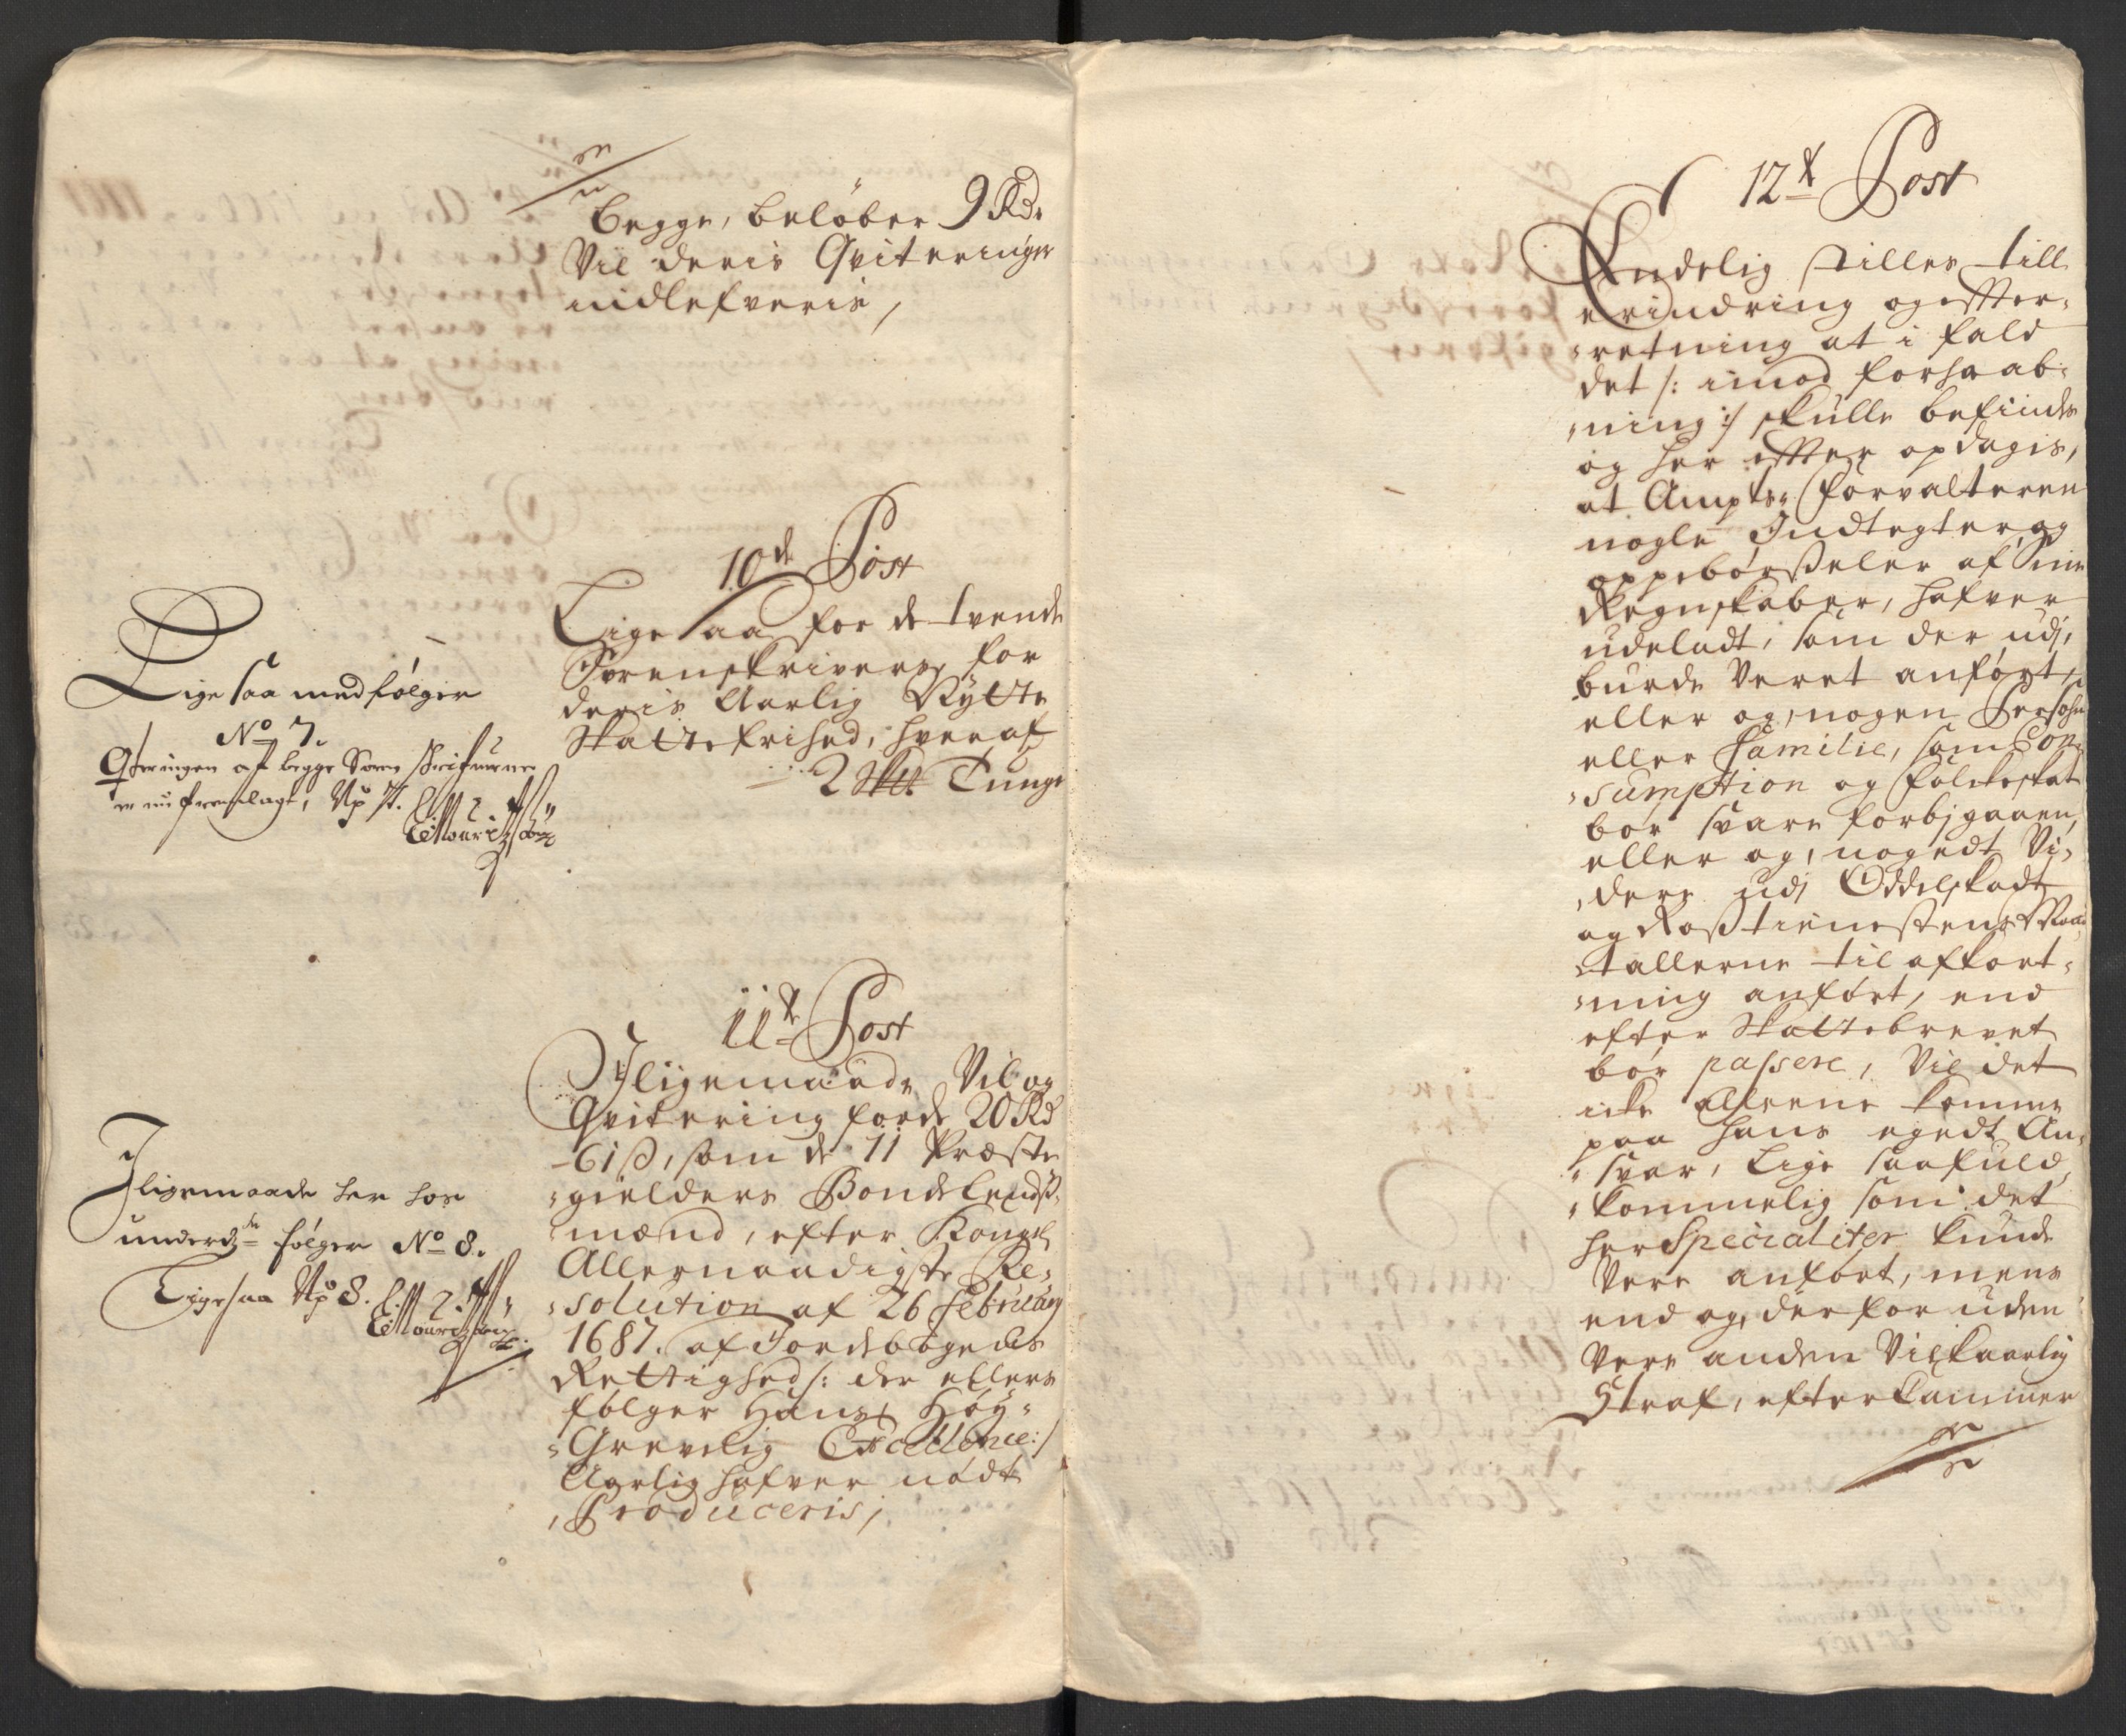 begge, beløber 9 Rdr
Vil deris Qviteringer
indlefveris,
10de Post
Lige saa for de tvende
Sorenskrivere, for
deris Aarlig Rytter
Skatte frihed, hver af
2 Tunge
Lige saa medfølger
No 7.
Qteringen af begge Soren Skrifuerne
er nu fremlagt, No 7.
11te Post
Iligemaade Vil og
Qvitering for de 20 Rd
61 ß, som de 11 Præste
gielders Bondelends
mænd, efter Kongl
Allernaadigste Re-
solution af 26 Februarij
1687. af Jordebogens
Rettighed /: der ellers
følger Hans Høy-
Grevelig Excellence :/
Aarlig hafver nødt
Produceris,
Iligemaade her hos
underdn følger No 8.
Ligesaa No 8.
12te Post
Endelig stilles till
erindring og effter-
retning at i fald
det /: imod forhaab-
ning :/ skulle befindes
og her effter opdagis,
at Ampts-forvalteren
nogle Indtegter og
oppebørßeler af Sine
Regnskaber, hafver
udeladt, som der udj,
burde Veret anført,
eller og nogen Persohn
eller Familie, som Con-
sumption og folcke skat
bør svare forbjgaaen,
eller og, nogedt Vi-
dere udj Oddelskadt
og Roßtienestens Man
tallerne til afkort-
ning anført, end
efter Skattebrevet
bør passere, Vil det
icke alleene komme
paa hans egedt An-
svar, Lige saafuld
kommelig som det
her Specialiter kunde
Vere anført, mens
end og, derfor uden
Vere anden Vilkaarlig
Straf, efter Cammer